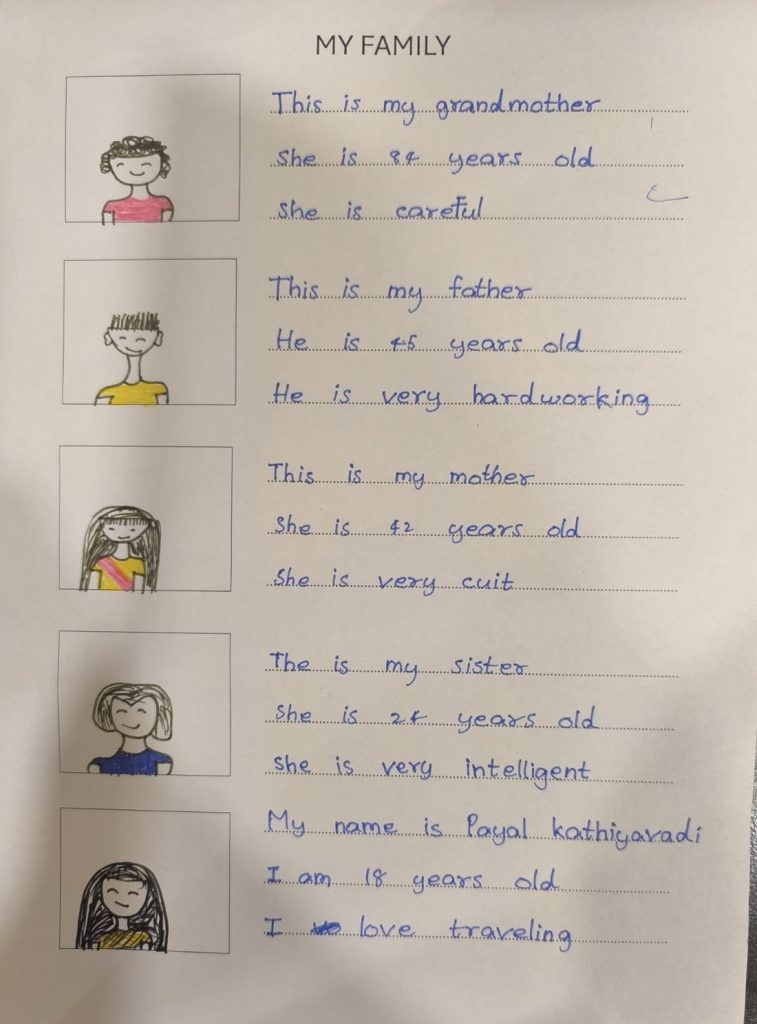 MY FAMILY
This is my grandmother
She is 84 years old
She is careful
This is my father
He is 45 years old
He is very hardworking
This is my mother
She is 42 years old
She is very cuit
The is my sister
She is 24 years old
She is very intelligent
My name is Payal kathiyavadi
I am 18 years old
I love traveling